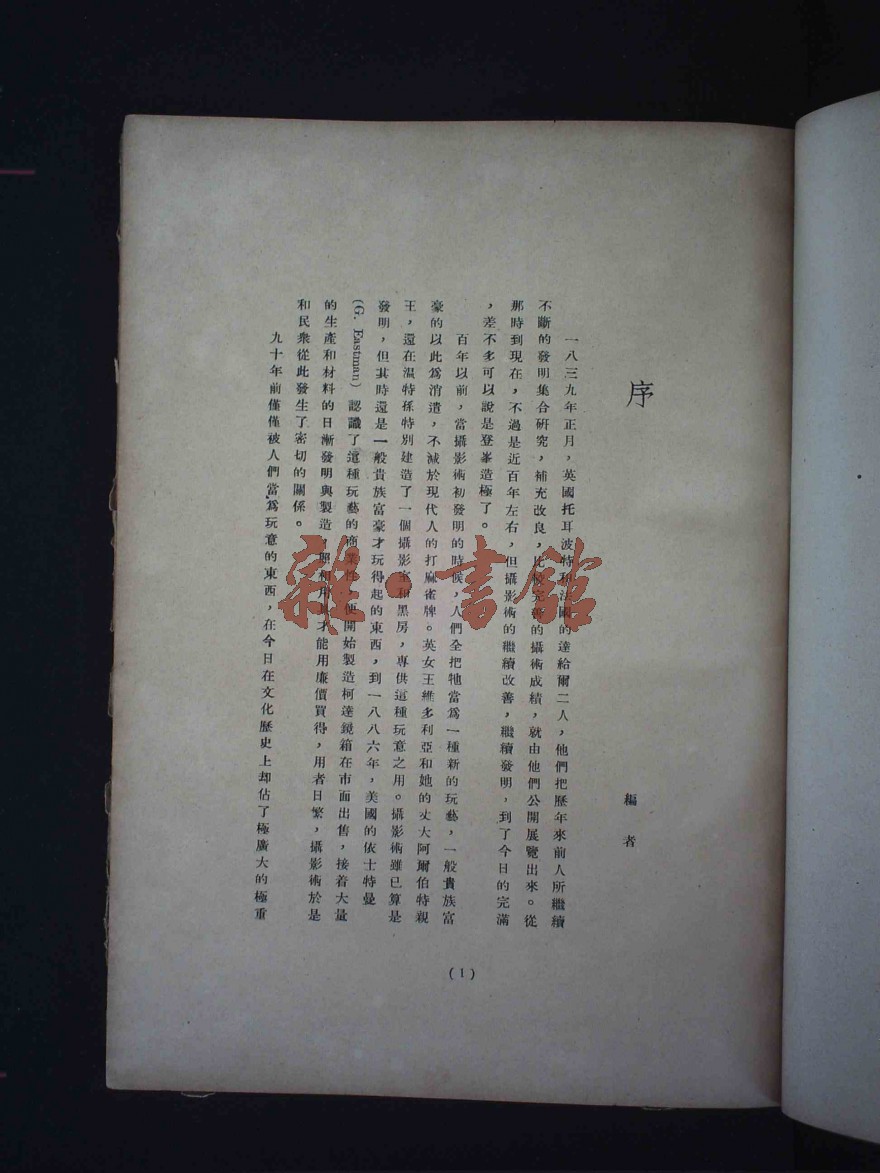 序
編者
一八三九年正月，英國托耳波特和法國的達給爾二人，他們把歷年來前人所繼續
不斷的發明集合研究，補充改良，比較完善的攝術成績，就由他們公開展覽出來。從
那時到現在，不過是近百年左右，但攝影術的繼續改善，繼續發明，到了今日的完滿
，差不多可以說是登峯造極了。
百年以前，當攝影術初發明的時候，人們全把牠當爲一種新的玩藝，一般貴族富
豪的以此爲消遣，不減於現代人的打麻雀牌。英女王維多利亞和她的丈夫阿爾伯特親
王，還在温特孫特別建造了一個攝影室和黑房，專供這種玩意之用。攝影術雖已算是
發明，但其時還是一般貴族富豪才玩得起的東西，到一八八六年，美國的依士特曼
(G. Eastman) 認識了這種玩藝的商業性，便開始製造柯達鏡箱在市面出售，接着大量
的生產和材料的日漸發明與製造，照相才能用廉價買得，用者日繁，攝影術於是
和民衆從此發生了密切的關係。
九十年前僅僅被人們當爲玩意的東西，在今日在文化歷史上却佔了極廣大的極重
(1)
雜·書館